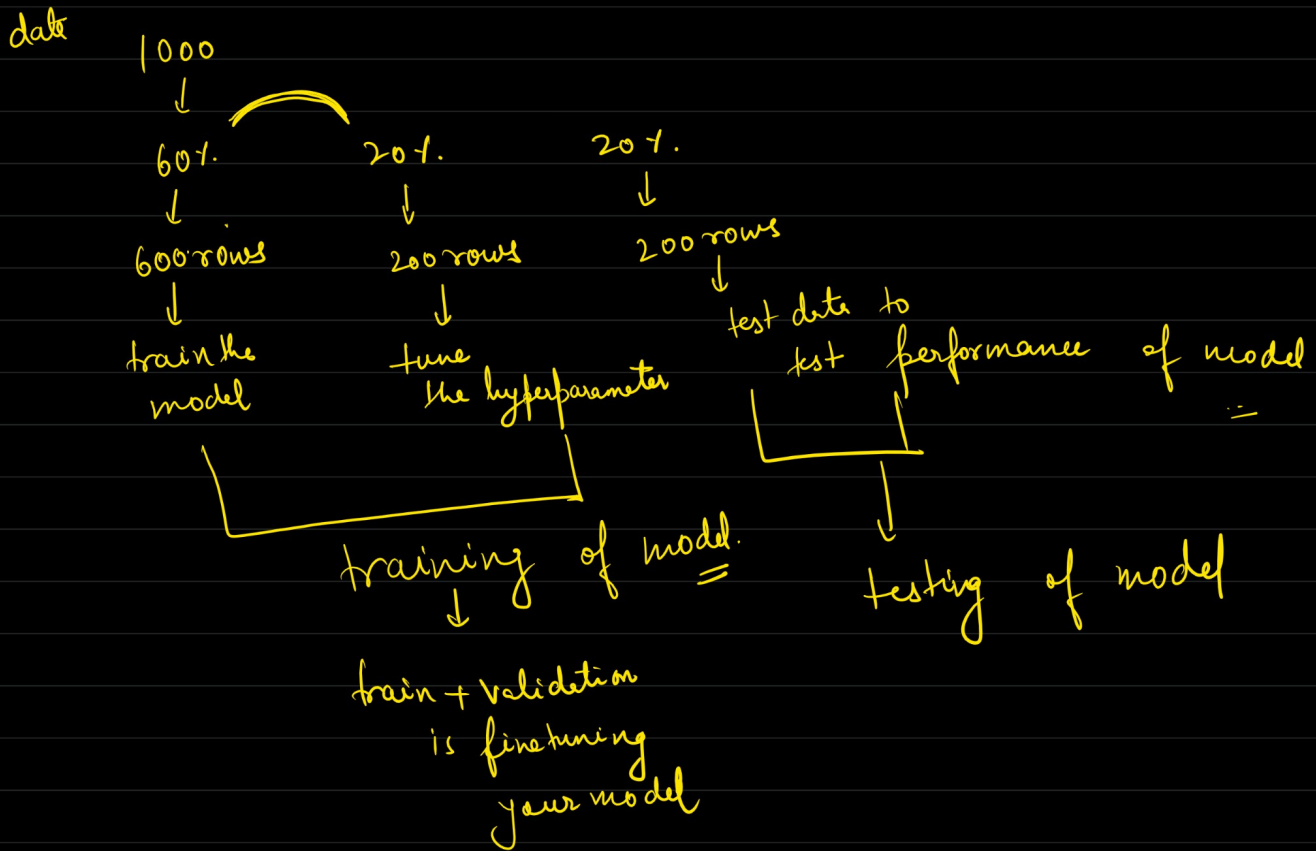 data
1000
60%. 20%. 20%.
600 rows 200 rows 200 rows
train the
model
tune
the hyperparameter
test data to
test performance of model
training of model.
testing of model
train + validation
is finetuning
your model